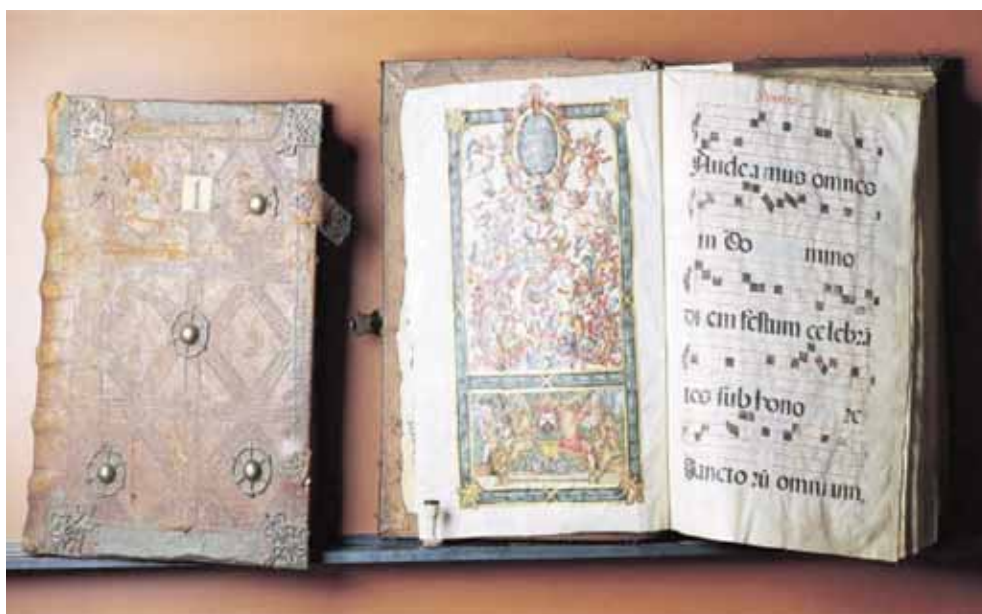 Gaudea mus omnes
in Do mino
di em festum celebrã
tes sub hono re
Sancto rũ omnium,